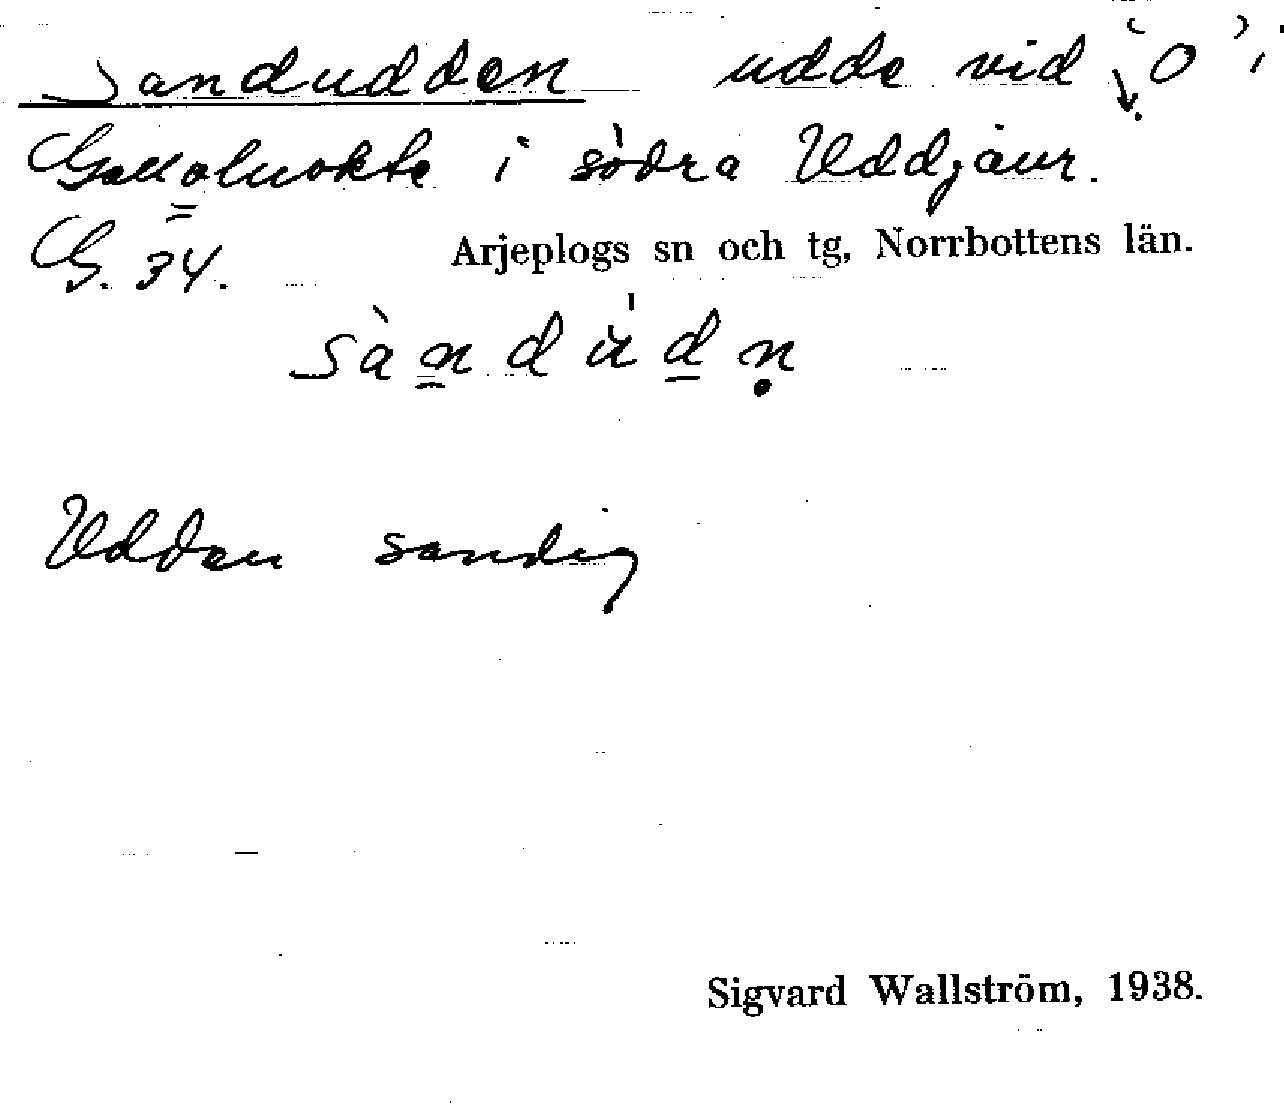 Sandudden udde vid 'o' i
Galloluokte i södra Uddjaur.
G. 34. Arjeplogs sn och tg, Norrbottens län.
sàndùdṇ
Udden sandig
Sigvard Wallström, 1938.